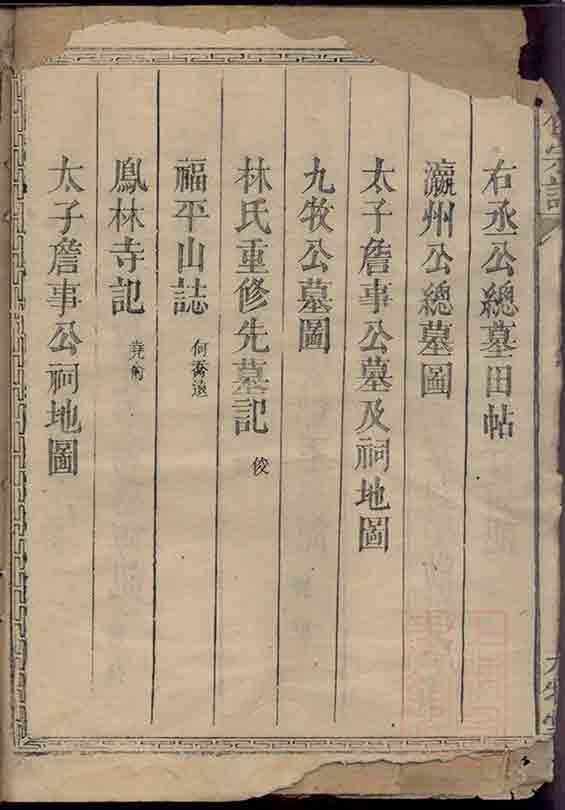 右丞公總墓田帖
瀛州公總墓圖
太子詹事公墓及祠地圖
九牧公墓圖
林氏重修先墓記 俊
福平山誌 何喬遠
鳳林寺記 堯俞
太子詹事公祠地圖